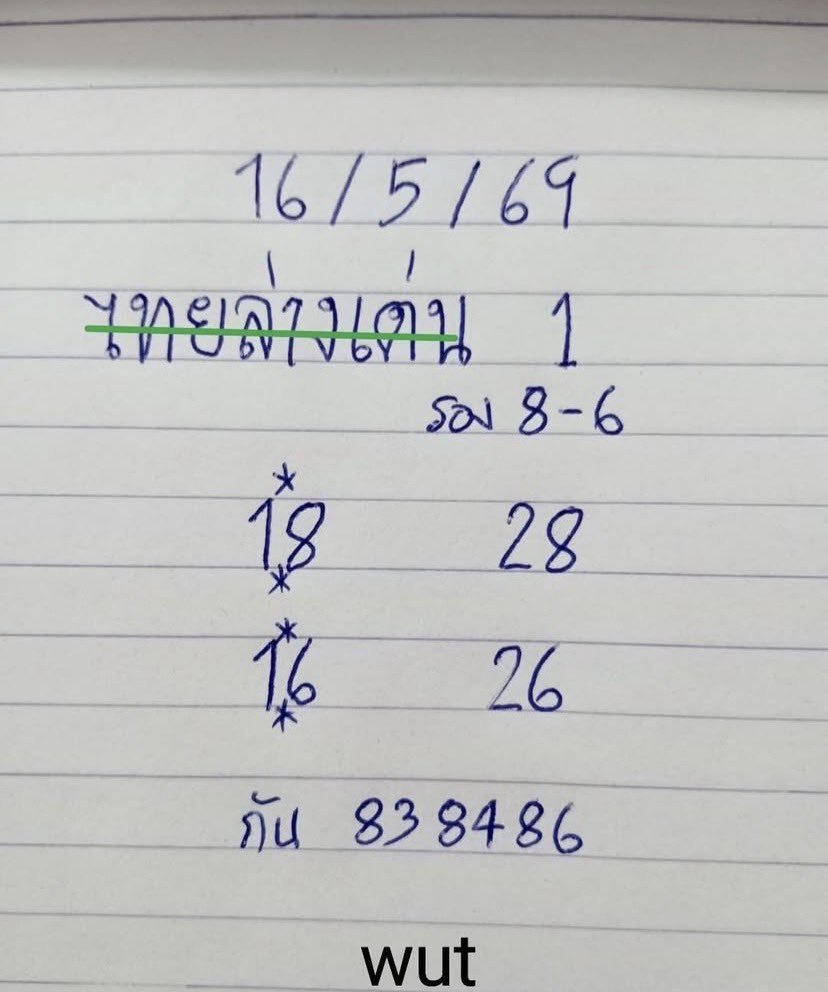 16/5/69
ไทยล่างเด่น 1
รอง 8-6
*
18 28
*
*
16 26
*
กัน 838486
wut